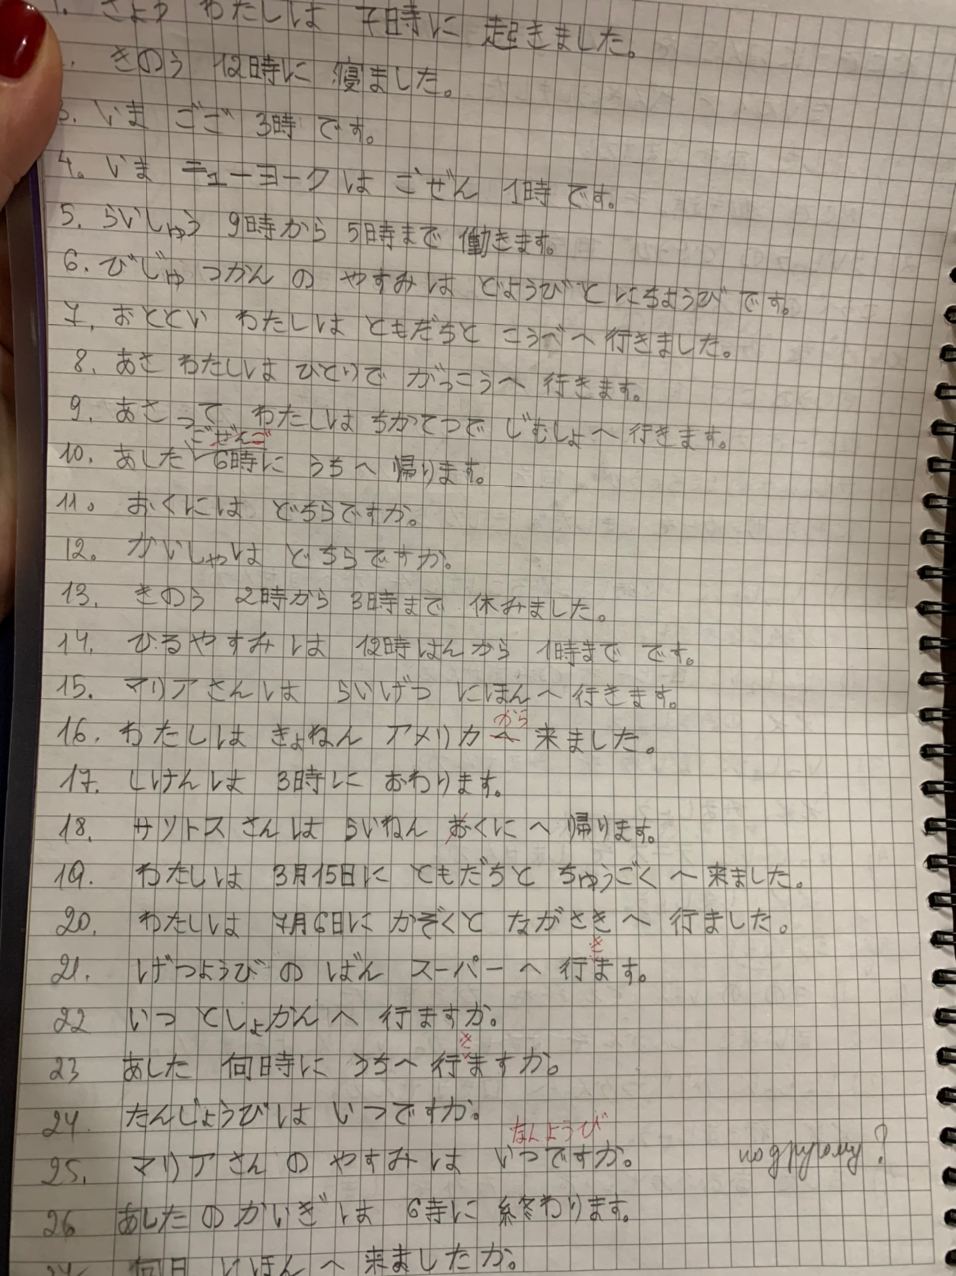 わたしは 7日時に 起きました。
きのう 12時に 寝ました。
3. いま ごご 3時 です。
4. いま ニューヨークは ごぜん 1時です。
5. らいしゅう 9時から 5時まで 働きます。
6. びじゅつかん の やすみは どようび と にちようび です。
7. おととい わたしは ともだちと こうべへ 行きました。
8. あさ わたしは ひとりで がっこうへ 行きます。
9. あさって わたしは ちかてつで じむしょへ 行きます。
ごぜんご
10. あした 6時に うちへ 帰ります。
11. おくには どちらですか。
12. かいしゃは どちらですか。
13. きのう 2時から 3時まで 休みました。
14. ひるやすみは 12時はんから 1時まで です。
15. マリアさんは らいげつ にほんへ 行きます。
から
16. わたしは きょねん アメリカへ 来ました。
17. しけんは 3時に おわります。
18. サントスさんは らいねん おくにへ 帰ります。
19. わたしは 3月15日に ともだちと ちゅうごくへ 来ました。
20. わたしは 7月6日に かぞくと ながさきへ 行ました。
き
21. げつようび の ばん スーパーへ 行ます。
22 いつ としょかんへ 行ますか。
き
23 あした 何時に うちへ 行ますか。
24. たんじょうびは いつですか。
なんようび
25. マリアさん の やすみは いつですか。 по другому?
26 あしたのかいぎは 6時に 終わります。
何日 にほんへ 来ましたか。